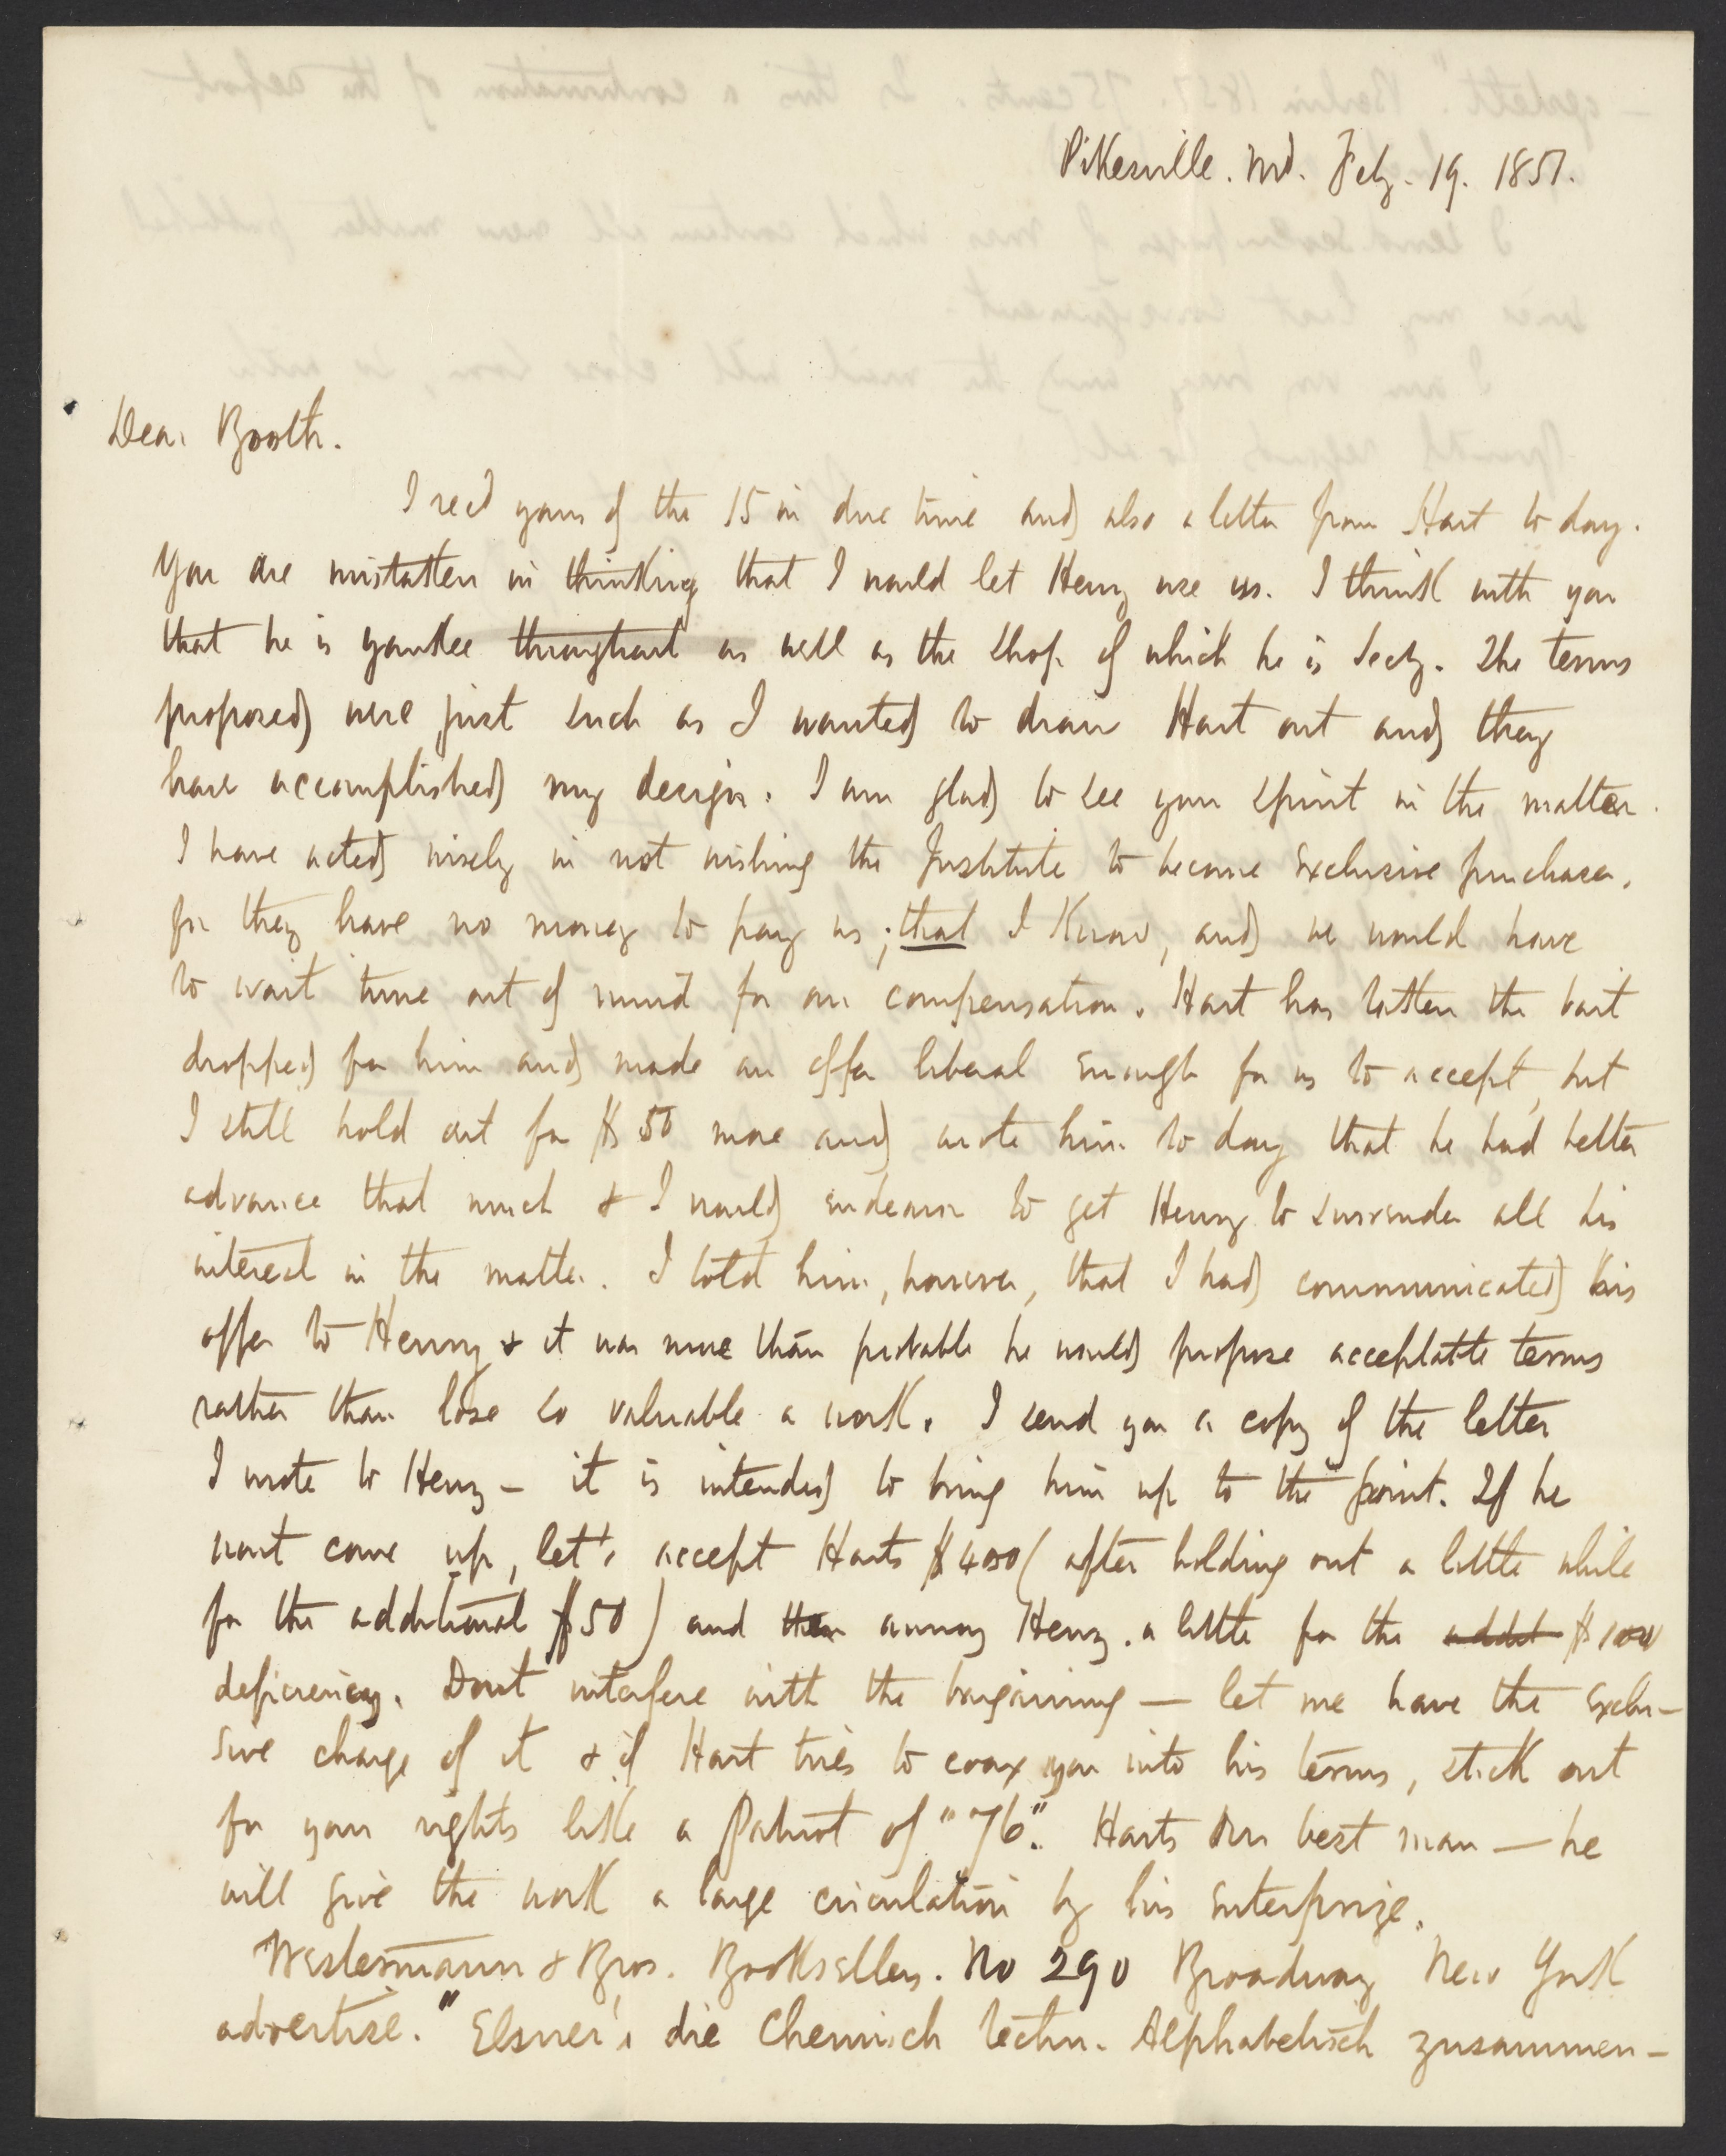 Pikesville. Md. Feby. 19. 1851.
Dear Booth.
I recd yours of the 15 in due time and also a letter from Hart to day.
You are mistaken in thinking that I would let Henry use us. I think with you
that he is yankee throughout as well as the shop of which he is Secty. The terms
proposed were just such as I wanted to draw Hart out and they
have accomplished my design. I am glad to see your spirit in the matter.
I have acted wisely in not wishing the Institute to become exclusive purchaser,
for they have no money to pay us; that I know, and we would have
to wait time out of mind for our compensation. Hart has taken the bait
dropped for him and made an offer liberal enough for us to accept, but
I still hold out for $50 more and wrote him to day that he had better
advance that much & I would endeavor to get Henry to surrender all his
interest in the matter. I told him, however, that I had communicated his
offer to Henry & it was more than probable he would propose acceptable terms
rather than lose so valuable a work. I send you a copy of the letter
I wrote to Henry – it is intended to bring him up to the point. If he
wont come up, let's accept Harts $400 (after holding out a little while
for the additional $50) and then annoy Henry. a little for the addit $100
deficiency. Dont interfere with the bargaining — let me have the exclu-
sive charge of it & if Hart tries to coax you into his terms, stick out
for your rights like a Patriot of "76". Harts our best man — he
will give the work a large circulation by his enterprize.
Westermann & Bros. Booksellers. No 290 Broadway New York
advertise. "Elsner's die Chemisch techn. Alphabetisch zusammen-